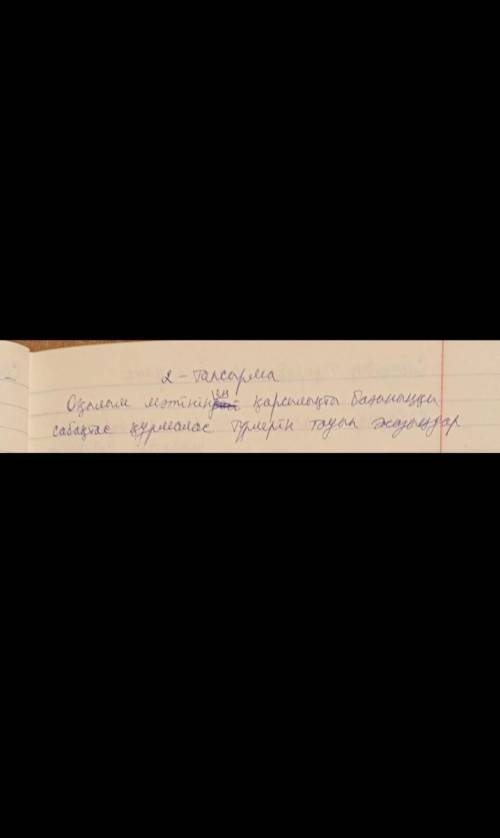 2-тапсырма
Оқылым мәтінінен қарсылықты бағыныңқы
сабақтас құрмалас түрлерін тауып жазыңдар